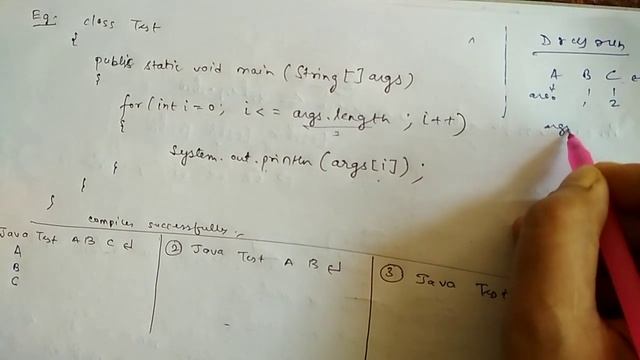 Eg: class Test
{
public static void main (String[] args)
{
for (int i = 0; i <= args.length ; i++)
{
System.out.println (args[i]) ;
}
}
}
compiles successfully
Java Test A B C ↵
A
B
C
② Java Test A B ↵
③ Java Test
A B C
0 1 2
args